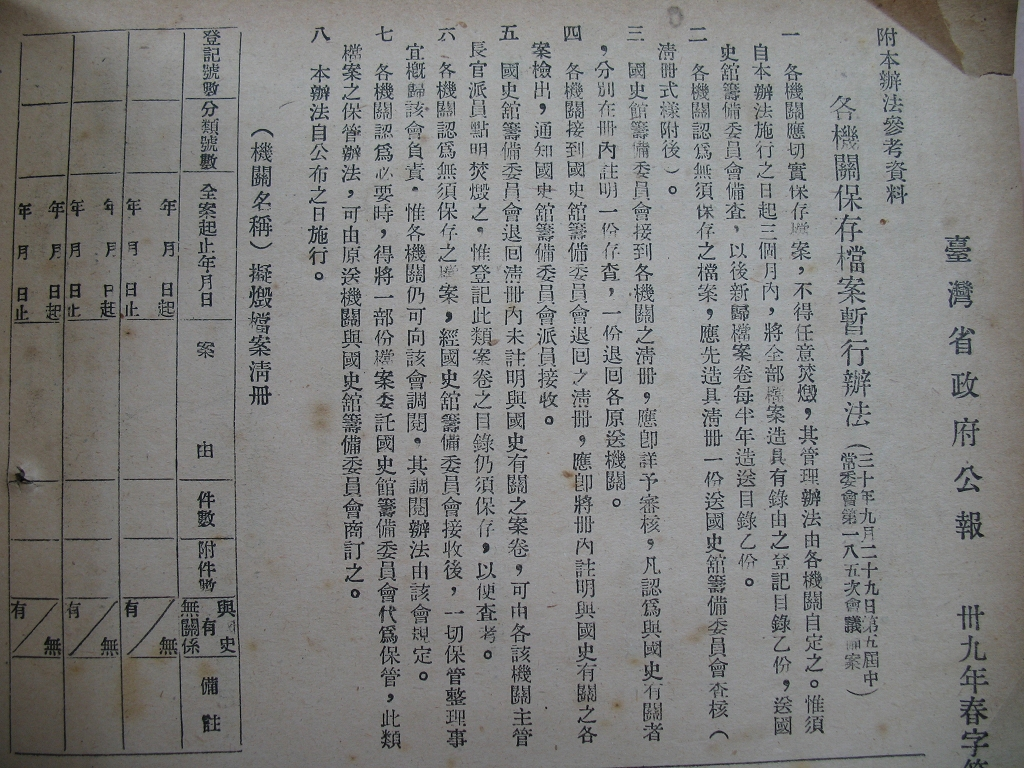 臺灣省政府公報 卅九年春字
附本辦法參考資料
各機關保存檔案暫行辦法
(三十年九月二十九日第五屆中
常委會第一八五次會議備案)
一 各機關應切實保存檔案,不得任意焚燬,其管理辦法由各機關自定之。惟須
自本辦法施行之日起三個月內,將全部檔案造具有錄由之登記目錄乙份,送國
史舘籌備委員會備查,以後新歸檔案卷每半年造送目錄乙份。
二 各機關認爲無須保存之檔案,應先造具淸冊一份送國史舘籌備委員會查核(
淸冊式樣附後)。
三 國史舘籌備委員會接到各機關之淸冊,應卽詳予審核,凡認爲與國史有關者
,分別在冊內註明一份存查,一份退回各原送機關。
四 各機關接到國史舘籌備委員會退回之淸冊,應卽將冊內註明與國史有關之各
案檢出,通知國史舘籌備委員會派員接收。
五 國史舘籌備委員會退回淸冊內未註明與國史有關之案卷,可由各該機關主管
長官派員點明焚燬之。惟登記此類案卷之目錄仍須保存,以便查考。
六 各機關認爲無須保存之檔案,經國史舘籌備委員會接收後,一切保管整理事
宜槪歸該會負責。惟各機關仍可向該會調閱。其調閱辦法由該會規定。
七 各機關認爲必要時,得將一部份檔案委託國史館籌備委員會代爲保管,此類
檔案之保管辦法,可由原送機關與國史舘籌備委員會商訂之。
八 本辦法自公布之日施行。
(機關名稱)擬燬檔案淸冊
登記號數 分類號數 全案起止年月日 案由 件數 附件數 與國史有無關係 備註
年 月 日起
年 月 日止
有/無
年 月 日起
年 月 日止
有/無
年 月 日起
年 月 日止
有/無